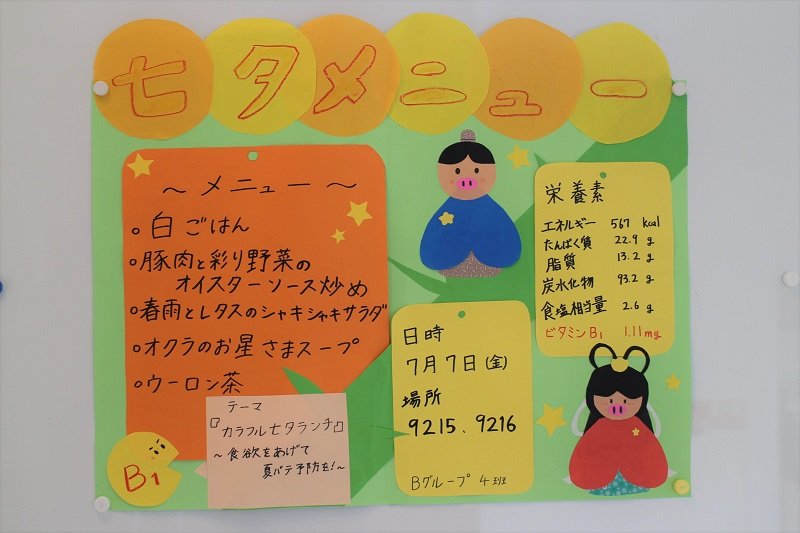 七夕メニュー
～メニュー～
○白ごはん
○豚肉と彩り野菜の
オイスターソース炒め
○春雨とレタスのシャキシャキサラダ
○オクラのお星さまスープ
○ウーロン茶
B1
テーマ
『カラフル七夕ランチ』
～食欲をあげて
夏バテ予防を!～
日時
7月7日(金)
場所
9215.9216
Bグループ 4班
栄養素
エネルギー 567 kcal
たんぱく質 22.9 g
脂質 13.2 g
炭水化物 93.2 g
食塩相当量 2.6 g
ビタミンB1 1.11mg